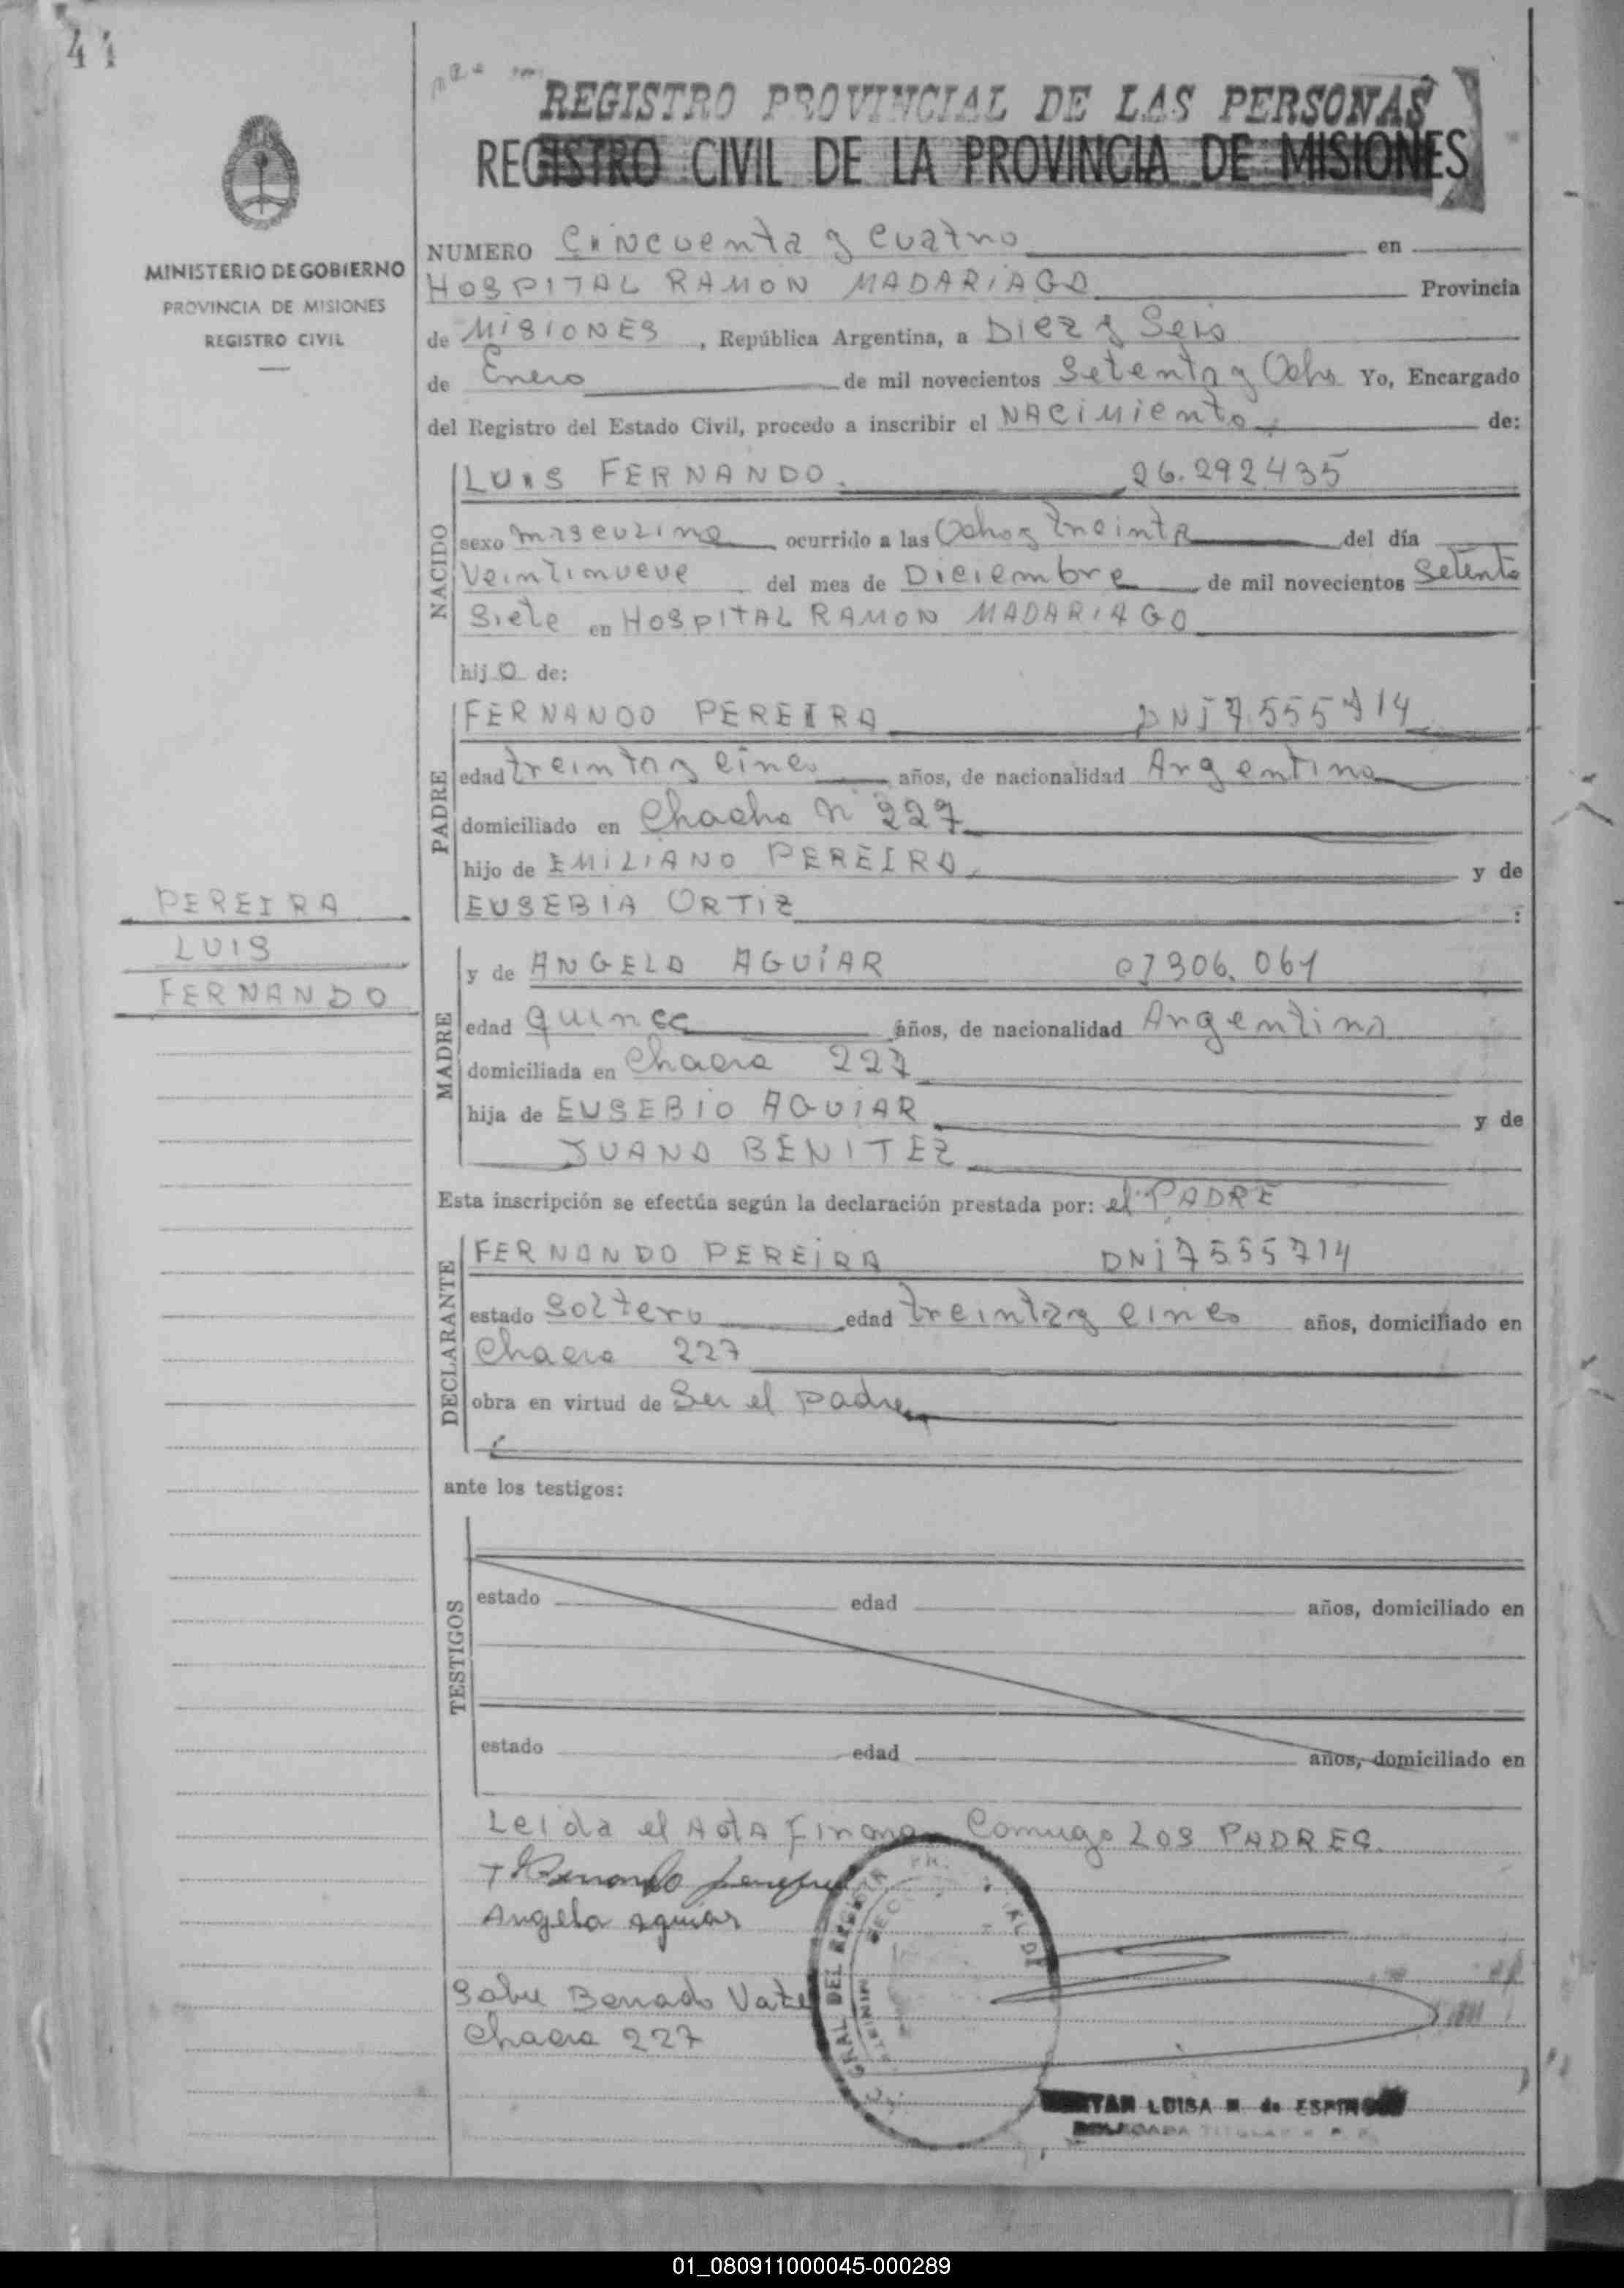 44
REGISTRO PROVINCIAL DE LAS PERSONAS
REGISTRO CIVIL DE LA PROVINCIA DE MISIONES
MINISTERIO DE GOBIERNO
PROVINCIA DE MISIONES
REGISTRO CIVIL
NUMERO Cincuenta y Cuatro en
HOSPITAL RAMON MADARIAGA Provincia
de MISIONES, República Argentina, a Diez y Seis
de Enero de mil novecientos Setenta y Ocho Yo, Encargado
del Registro del Estado Civil, procedo a inscribir el NACIMIENTO de:
NACIDO
LUIS FERNANDO. 26.292435
sexo masculino ocurrido a las Ocho y treinta del día
Veintinueve del mes de Diciembre de mil novecientos Setenta
Siete en HOSPITAL RAMON MADARIAGO
hijo de:
PADRE
FERNANDO PEREIRA DNI 7.555714
edad treinta y cinco años, de nacionalidad Argentina
domiciliado en Chacha N° 227
hijo de EMILIANO PEREIRA y de
EUSEBIA ORTIZ :
PEREIRA
LUIS
FERNANDO
MADRE
y de ANGELA AGUIAR 306.061
edad quince años, de nacionalidad Argentina
domiciliada en Chacra 227
hija de EUSEBIO AGUIAR y de
JUANA BENITEZ
Esta inscripción se efectúa según la declaración prestada por: el PADRE
DECLARANTE
FERNANDO PEREIRA DNI 7555714
estado Soltero edad treinta y cinco años, domiciliado en
Chacra 227
obra en virtud de Ser el padre
ante los testigos:
TESTIGOS
estado edad años, domiciliado en
estado edad años, domiciliado en
Leida el Acta Firman Comigo LOS PADRES.
Angela Aguiar
Chacra 227
LUISA M. de
TITULAR
01_080911000045-000289